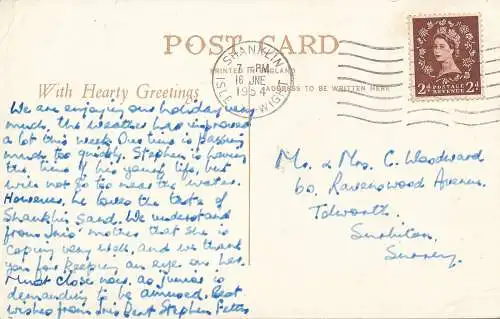 POST CARD
SHANKLIN
7 - PM
16 JNE
1954
ISLE
WIGHT
PRINTED IN ENGLAND
ADDRESS TO BE WRITTEN HERE
2d POSTAGE REVENUE 2d
With Hearty Greetings
We are enjoying our holiday very
much. The weather has improved
a lot this week. Our time is passing
much too quickly. Stephen is having
the time of his young life, but
will not go too near the water.
However, he loves the taste of
Shanklin sand. We understand
from Iris' mother that she is
coping very well, and we thank
you for keeping an eye on her.
Must close now, as junior is
demanding to be amused. Best
wishes from Iris Bert Stephen Petts
Mr. & Mrs C. Woodward
60. Ravenswood Avenue.
Tolworth.
Surbiton.
Surrey.